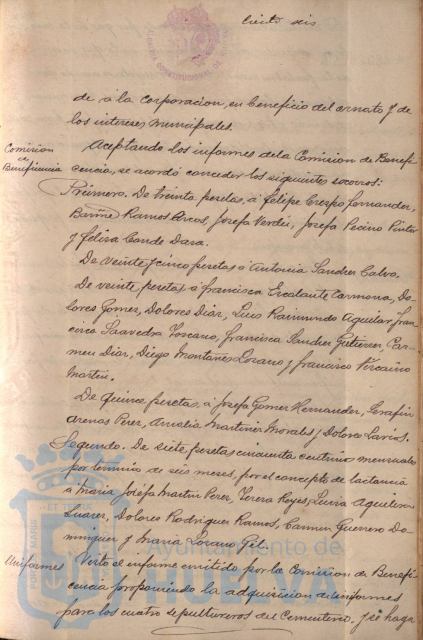 Ciento seis
de a la corporacion, en beneficio del ornato y de
los intereses municipales.
Comision de Beneficencia
Aceptando los informes dela Comision de Benefi
cencia, se acordó conceder los siguientes socorros:
Primero. De treinta pesetas, á Felipe Crespo Fernandez,
Ramos Arcos, Josefa Verdes, Josefa Pecino Pinto
y Felisa Conde Daza.
De veinte y cinco pesetas á Antonia Sandez Calvo.
De veinte pesetas, á Francisca Escalante Carmona, Do
lores Gomez, Dolores Diaz, Luis Raimundo Aguilar, Fran
cisca Saavedra Toscano, Francisca Sandez Gutierrez, Car
men Diaz, Diego Montañes Lozano y Francisco Vizcaino
Martin.
De quince pesetas, á Josefa Gomez Hernandez, Serafin
Arenas Perez, Amalia Martinez Morales y Dolores Larios.
Segundo. De siete pesetas cincuenta centimos mensuales
por termino de seis meses, por el concepto de lactancia
á Maria Josefa Martin Perez, Teresa Reyes, Luisa Aguilera
Suarez, Dolores Rodriguez Ramos, Carmen Guerrero Do
minguez y Maria Lozano Gil.
Uniformes
Visto el informe emitido por la Comision de Benefi
cencia proponiendo la adquisicion de uniformes
para los cuatro sepultureros del Cementerio, y se haga
Ayuntamiento de
HUELVA